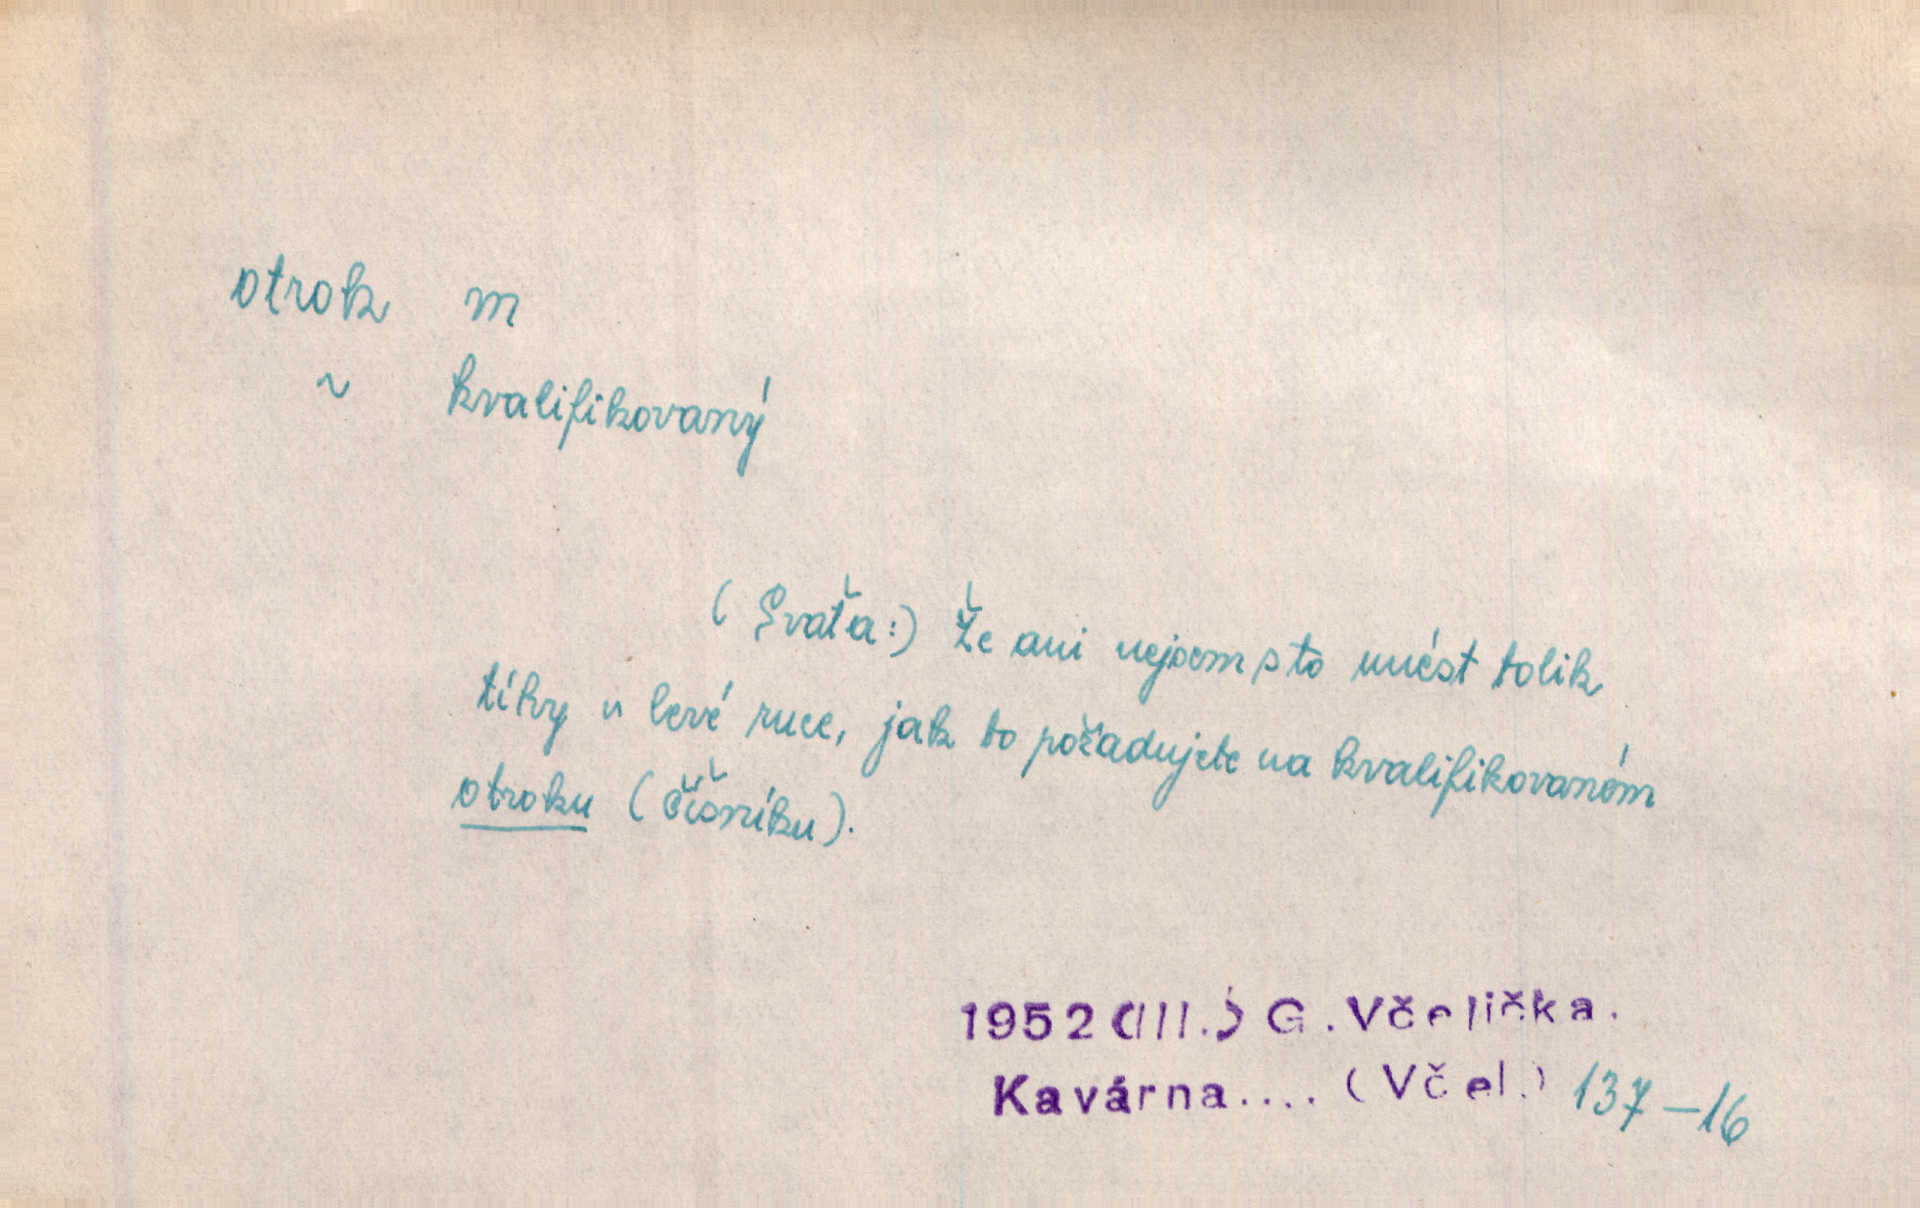 otrok m
~ kvalifikovaný
(Svaťa:) Že ani nejsem s to unést tolik
tíhy v levé ruce, jak to požadujete na kvalifikovaném
otroku (číšníku).
1952 (III.) G. Včelička.
Kavárna.... (Včel.) 137-16